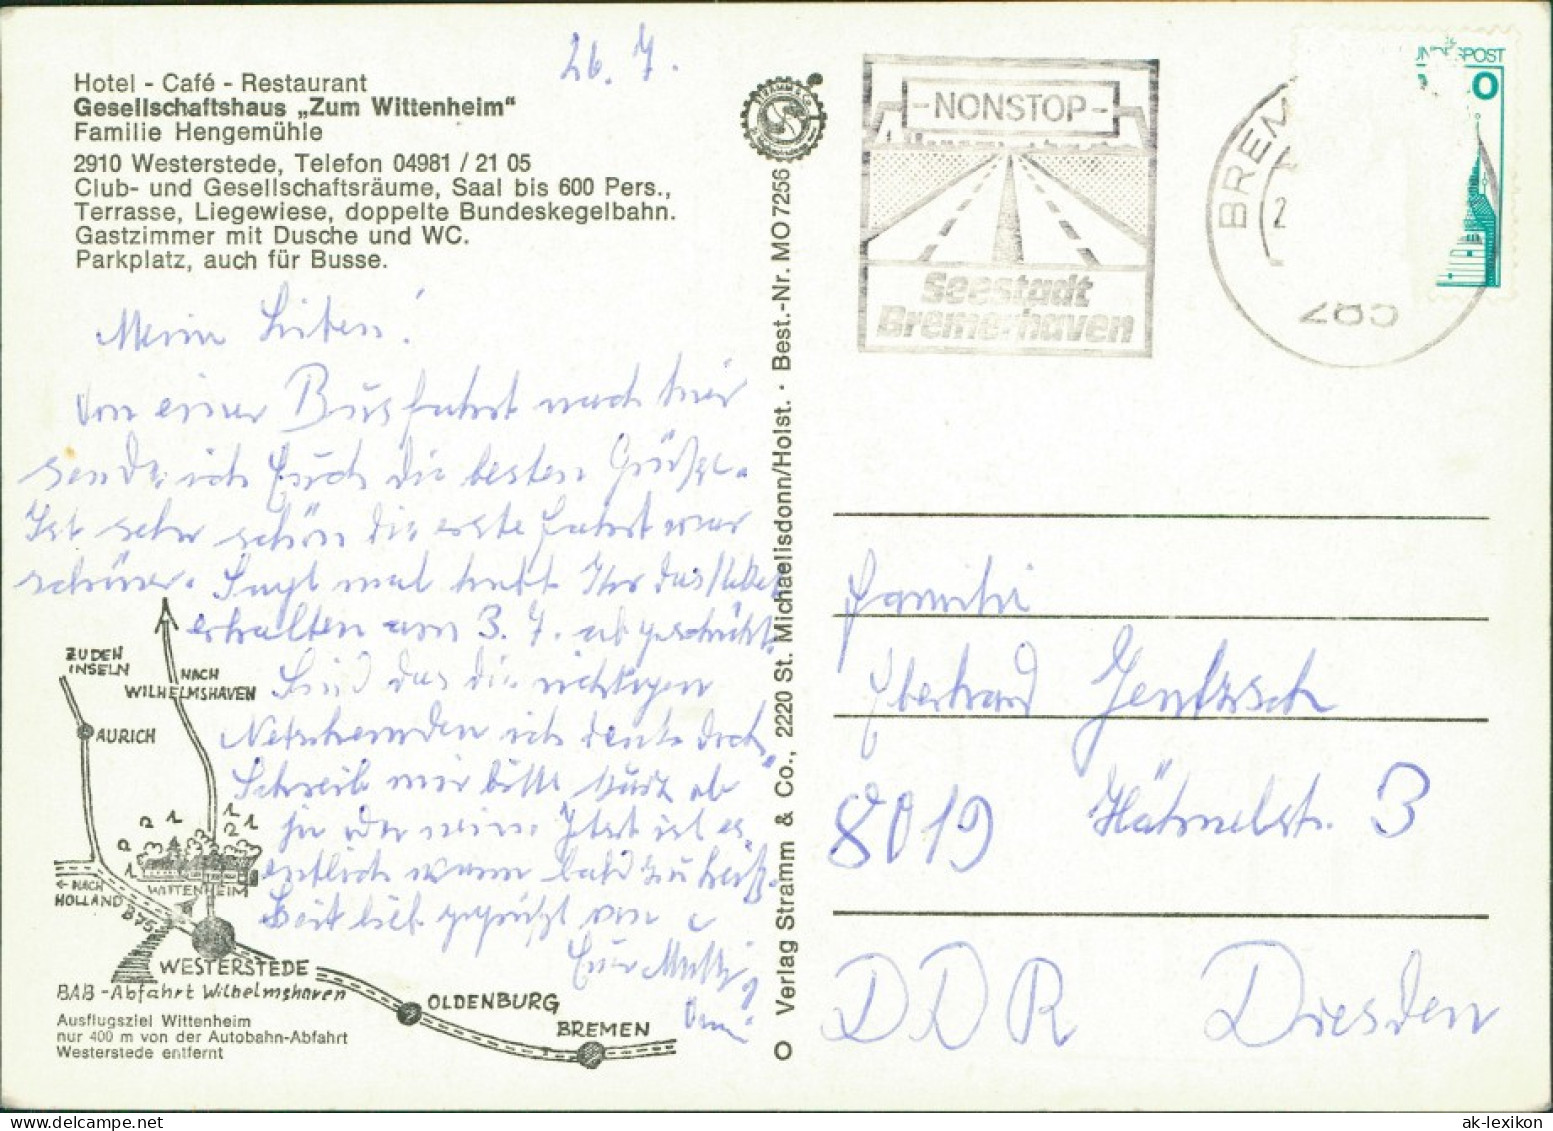 26. 7.
Hotel - Café - Restaurant
Gesellschaftshaus „Zum Wittenheim“
Familie Hengemühle
2910 Westerstede, Telefon 04981 / 21 05
Club- und Gesellschaftsräume, Saal bis 600 Pers.,
Terrasse, Liegewiese, doppelte Bundeskegelbahn.
Gastzimmer mit Dusche und WC.
Parkplatz, auch für Busse.
Meine Lieben!
Von einer Busfahrt nach hier
sende ich Euch die besten Grüße.
Ist sehr schön die erste Fahrt war
schöner. Sagt mal habt Ihr das Paket
erhalten am 3. 7. abgeschickt.
Sind das die richtigen
Netzhemden ich denke doch.
Schreib mir bitte kurz ob
ja oder nein. Jetzt ist es
endlich warm bald zu heiß.
Seit lieb gegrüßt von
Eurer Mutti
Omi
ZU DEN
INSELN
NACH
WILHELMSHAVEN
AURICH
WITTENHEIM
← NACH
HOLLAND
B75
WESTERSTEDE
BAB - Abfahrt Wilhelmshaven
OLDENBURG
BREMEN
Ausflugsziel Wittenheim
nur 400 m von der Autobahn-Abfahrt
Westerstede entfernt
O Verlag Stramm & Co., 2220 St. Michaelisdonn/Holst. · Best.-Nr. MO 7256
-NONSTOP-
Seestadt
Bremerhaven
BREM
2
UNDESPOST
0
Familie
Eberhard Jentzsch
8019 Hähnelstr. 3
DDR Dresden
ak-lexikon